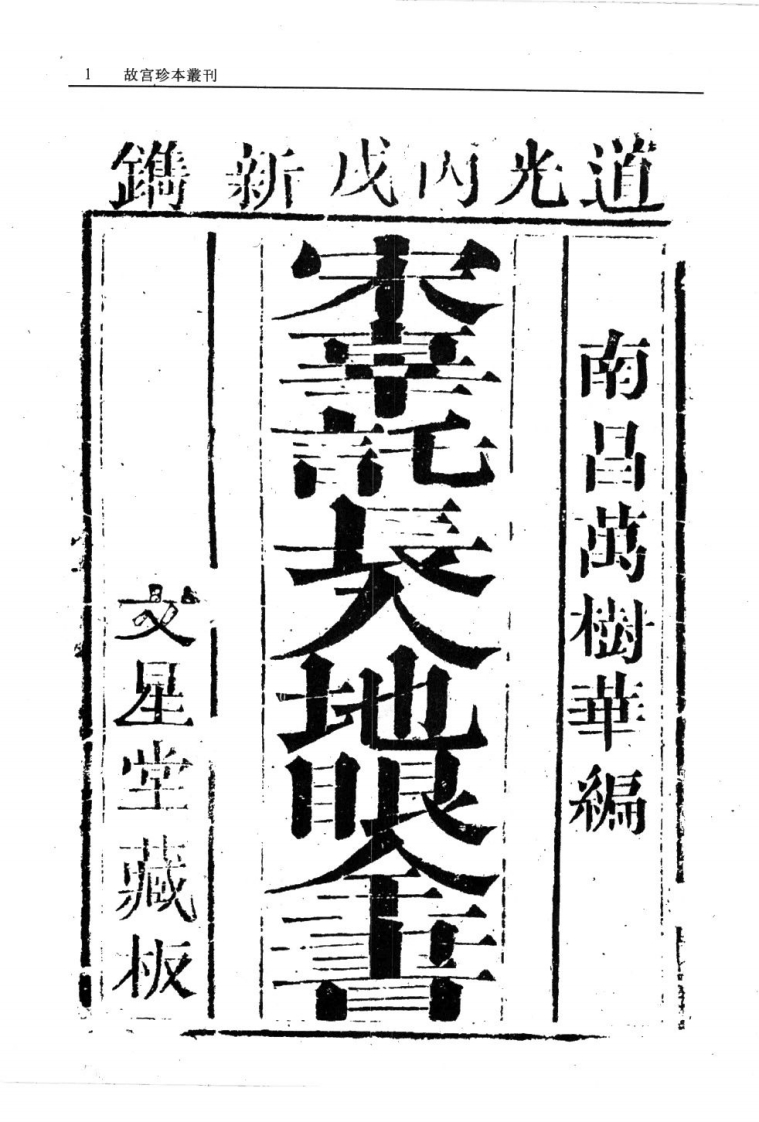 1 故宫珍本叢刊
道光丙戌新鐫
南昌萬樹華編
宋辜託長入地眼全書
文星堂藏板